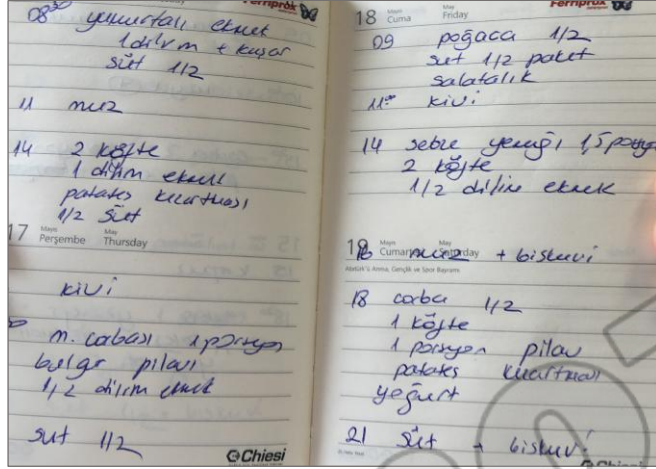 08³⁰ yumurtalı ekmek
1 dilim + kaşar
süt 1/2
11 muz
14 2 köfte
1 dilim ekmek
patates kızartması
1/2 süt
17 Mayıs Perşembe May Thursday
kivi
m. çorbası 1 porsiyon
bulgur pilavı
1/2 dilim ekmek
süt 1/2
Chiesi
Ferriprox
18 Mayıs Cuma May Friday
09 poğaca 1/2
süt 1/2 paket
salatalık
11³⁰ kivi
14 sebze yemeği 1,5 porsiyon
2 köfte
1/2 dilim ekmek
19 Mayıs Cumartesi May Saturday
Atatürk'ü Anma, Gençlik ve Spor Bayramı
16 muz + bisküvi
18 çorba 1/2
1 köfte
1 porsiyon pilav
patates kızartması
yoğurt
21 süt + bisküvi
Chiesi